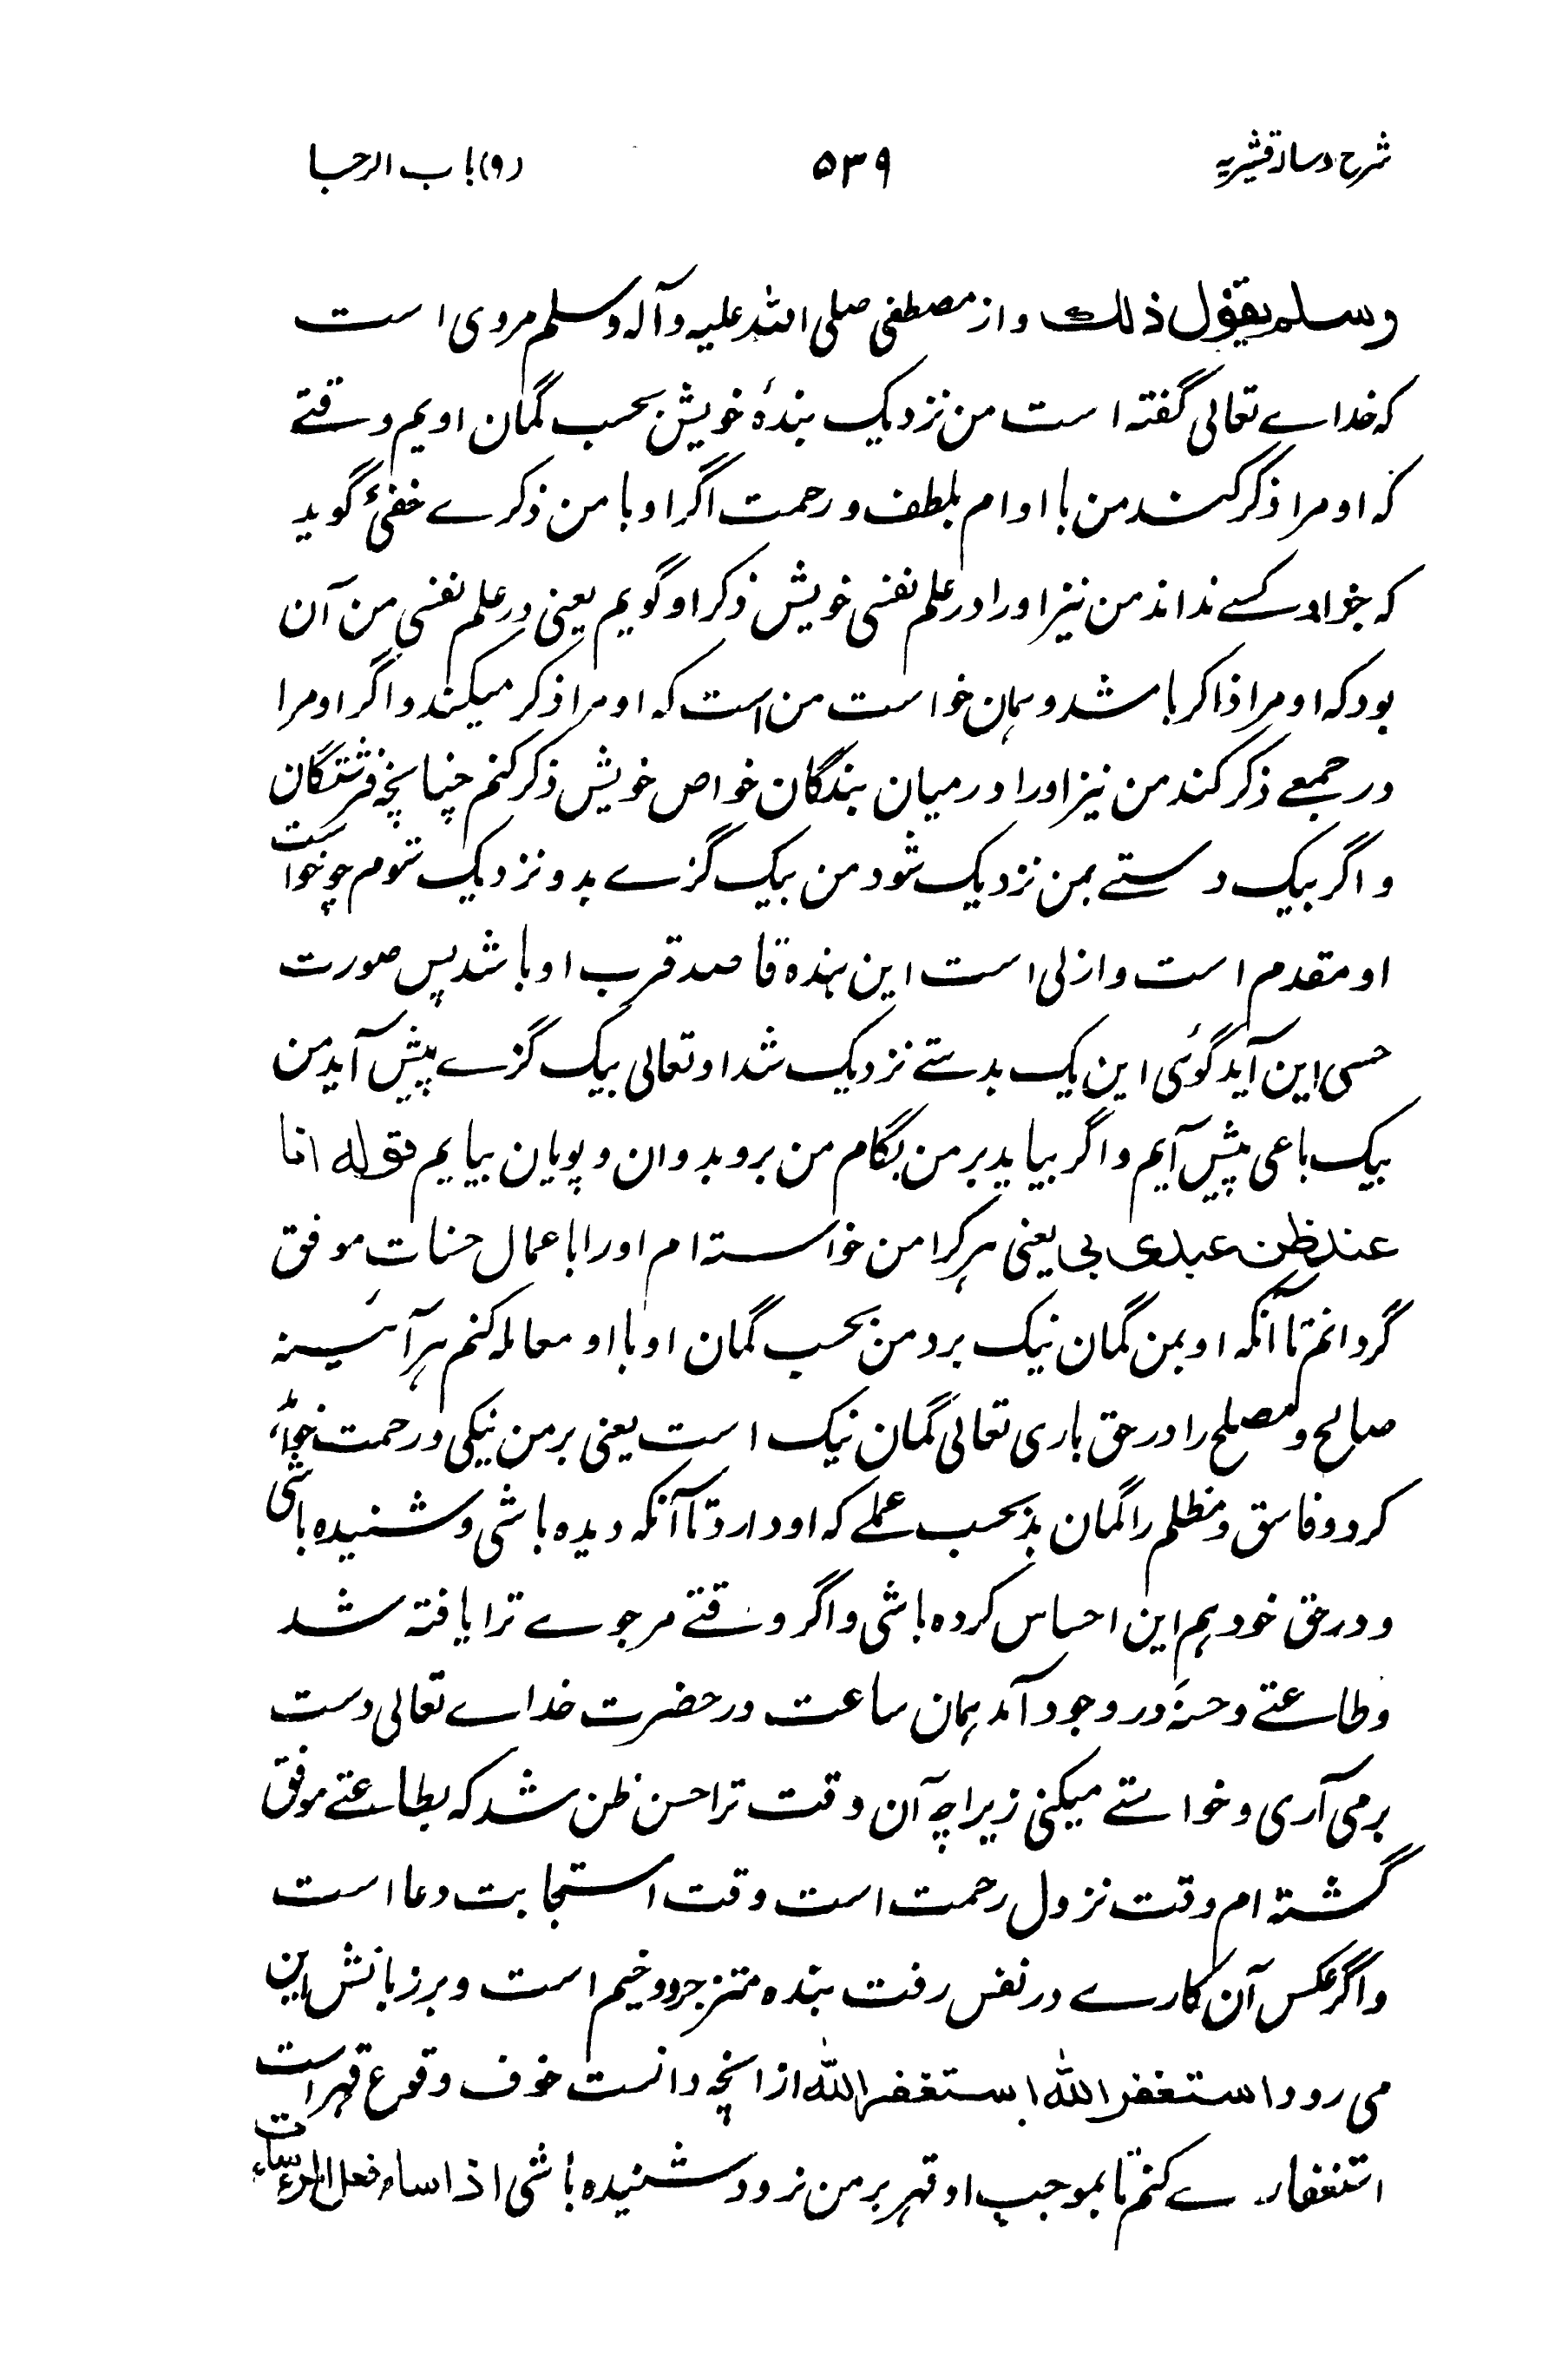 شرح رسالہ قشیریہ ۵۳۹ (۹) باب الرجا
وسلم یقول ذلک و از مصطفی صلی اللہ علیہ وآلہ وسلم مروی است
کہ خداے تعالی گفتہ است من نزدیک بندۂ خویش بحسب گمان اویم وقتے
کہ او مرا ذکر کند من با او ام بلطف و رحمت اگر او با من ذکرے خفیٔ گوید
کہ جز او کسے نداند من نیز اورا در علم نفسی خویش ذکر او گویم یعنی در علم نفسی من آن
بود کہ او مرا ذاکر باشد و ہمان خواست من است کہ او مرا ذکر میکند و اگر او مرا
در جمعے ذکر کند من نیز اورا در میان بندگان خواص خویش ذکر کنم چنانچہ فرشتگان
و اگر بیک دستے بمن نزدیک شود من بیک گزے بدو نزدیک شوم چو نخواست
او مقدم است و ازلی است این بندہ قاصد قرب او باشد پس صورت
حسی این آید گوئی این یک بدستے نزدیک شد او تعالی بیک گزے پیش آید من
بیک باعی پیش آیم و اگر بیاید بر من بگام من برو بدوان و پویان بیایم قولہ انا
عند ظن عبدی بی یعنی ہر کرا من خواستہ ام اورا باعمال حسنات موفق
گردانم تا آنکہ او بمن گمان نیک برد من بحسب گمان او با او معاملہ کنم ہر آئینہ
صالح و مصلح را در حق باری تعالی گمان نیک است یعنی بر من نیکی و رحمت خواہد
کرد و فاسق و مظلم را گمان بد بحسب عملے کہ او دارد تا آنکہ دیدہ باشی و شنیدہ باشی
و در حق خود ہم این احساس کردہ باشی و اگر وقتے مرجوے ترا یافتہ شد
و طاعتے و حسنۂ در وجود آمد ہمان ساعت در حضرت خداے تعالی دست
بر می آری و خواستے میکنی زیراچہ آن وقت ترا حسن ظن شد کہ بطاعتے موفق
گشتہ ام وقت نزول رحمت است وقت استجابت دعا است
و اگر عکس آن کارے در نفس رفت بندہ منزجر و وخیم است و بر زبانش این
می رود استغفر اللہ استغفر اللہ ازانچہ دانست خوف وقوع قہر است
استغفارے کنم تا بموجب او قہر بر من نرود شنیدہ باشی اذا ساء فعل المرء ساءت